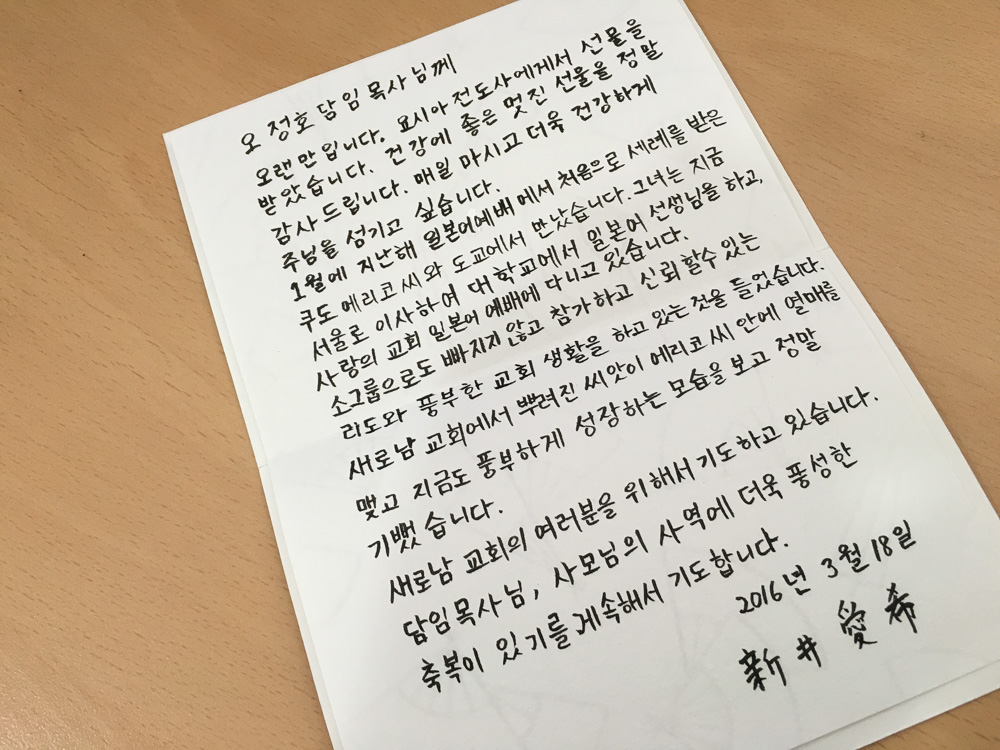 오 정호 담임 목사님께
오랜만입니다. 요시아 전도사에게서 선물을
받았습니다. 건강에 좋은 멋진 선물을 정말
감사 드립니다. 매일 마시고 더욱 건강하게
주님을 섬기고 싶습니다.
1월에 지난해 일본어예배에서 처음으로 세례를 받은
쿠도 에리코 씨와 도쿄에서 만났습니다. 그녀는 지금
서울로 이사하여 대학교에서 일본어 선생님을 하고,
사랑의 교회 일본어 예배에 다니고 있습니다.
소그룹으로도 빠지지 않고 참가하고 신뢰 할수 있는
리도와 풍부한 교회 생활을 하고 있는 것을 들었습니다.
새로남 교회에서 뿌려진 씨앗이 에리코 씨 안에 열매를
맺고 지금도 풍부하게 성장하는 모습을 보고 정말
기뻤습니다.
새로남 교회의 여러분을 위해서 기도하고 있습니다.
담임목사님, 사모님의 사역에 더욱 풍성한
축복이 있기를 계속해서 기도합니다.
2016년 3월 18일
新井 愛希